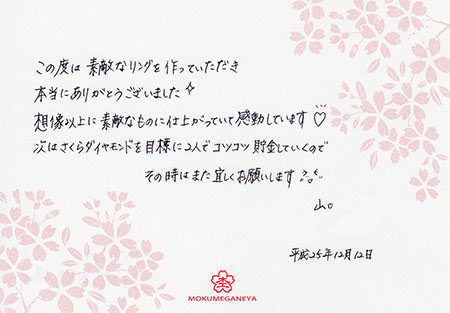 この度は素敵なリングを作っていただき
本当にありがとうございました
想像以上に素敵なものに仕上がっていて感動しています♡
次はさくらダイヤモンドを目標に2人でコツコツ貯金していくので
その時はまた宜しくお願いします
山口
平成25年12月12日
MOKUMEGANEYA